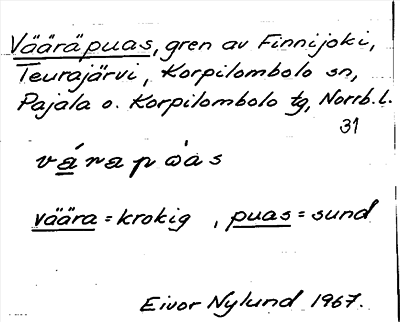 Vääräpuas, gren av Finnijoki,
Teurajärvi, Korpilombolo sn,
Pajala o. Korpilombolo tg, Norrb.l.
31
väära = krokig , puas = sund
Eivor Nylund 1967.